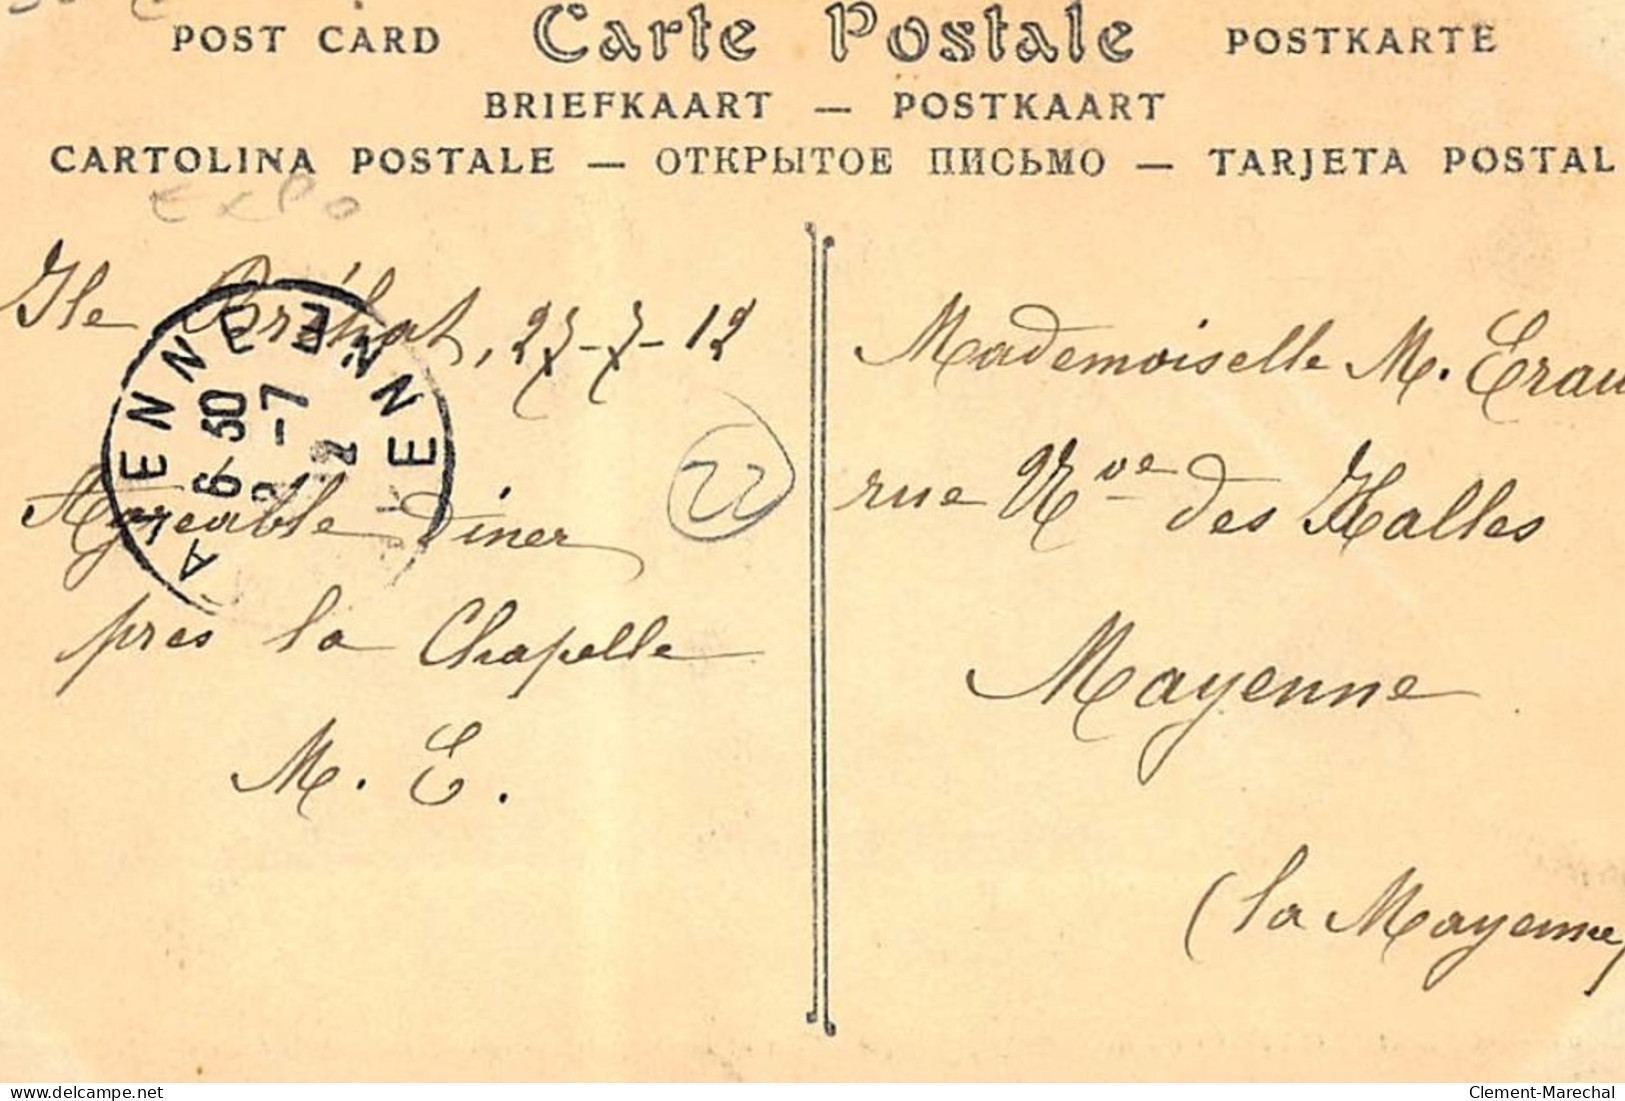 POST CARD Carte Postale POSTKARTE
BRIEFKAART — POSTKAART
CARTOLINA POSTALE — ОТКРЫТОЕ ПИСЬМО — TARJETA POSTAL
EXPO
Ile Bréhat, 27-7-12
Agréable diner
près la Chapelle
M. E.
22
MAYENNE
MAYENNE
6 30
-7
12
Mademoiselle M. Erau
rue Nve des Halles
Mayenne
(la Mayenne)
delcampe.net
Clement-Marechal